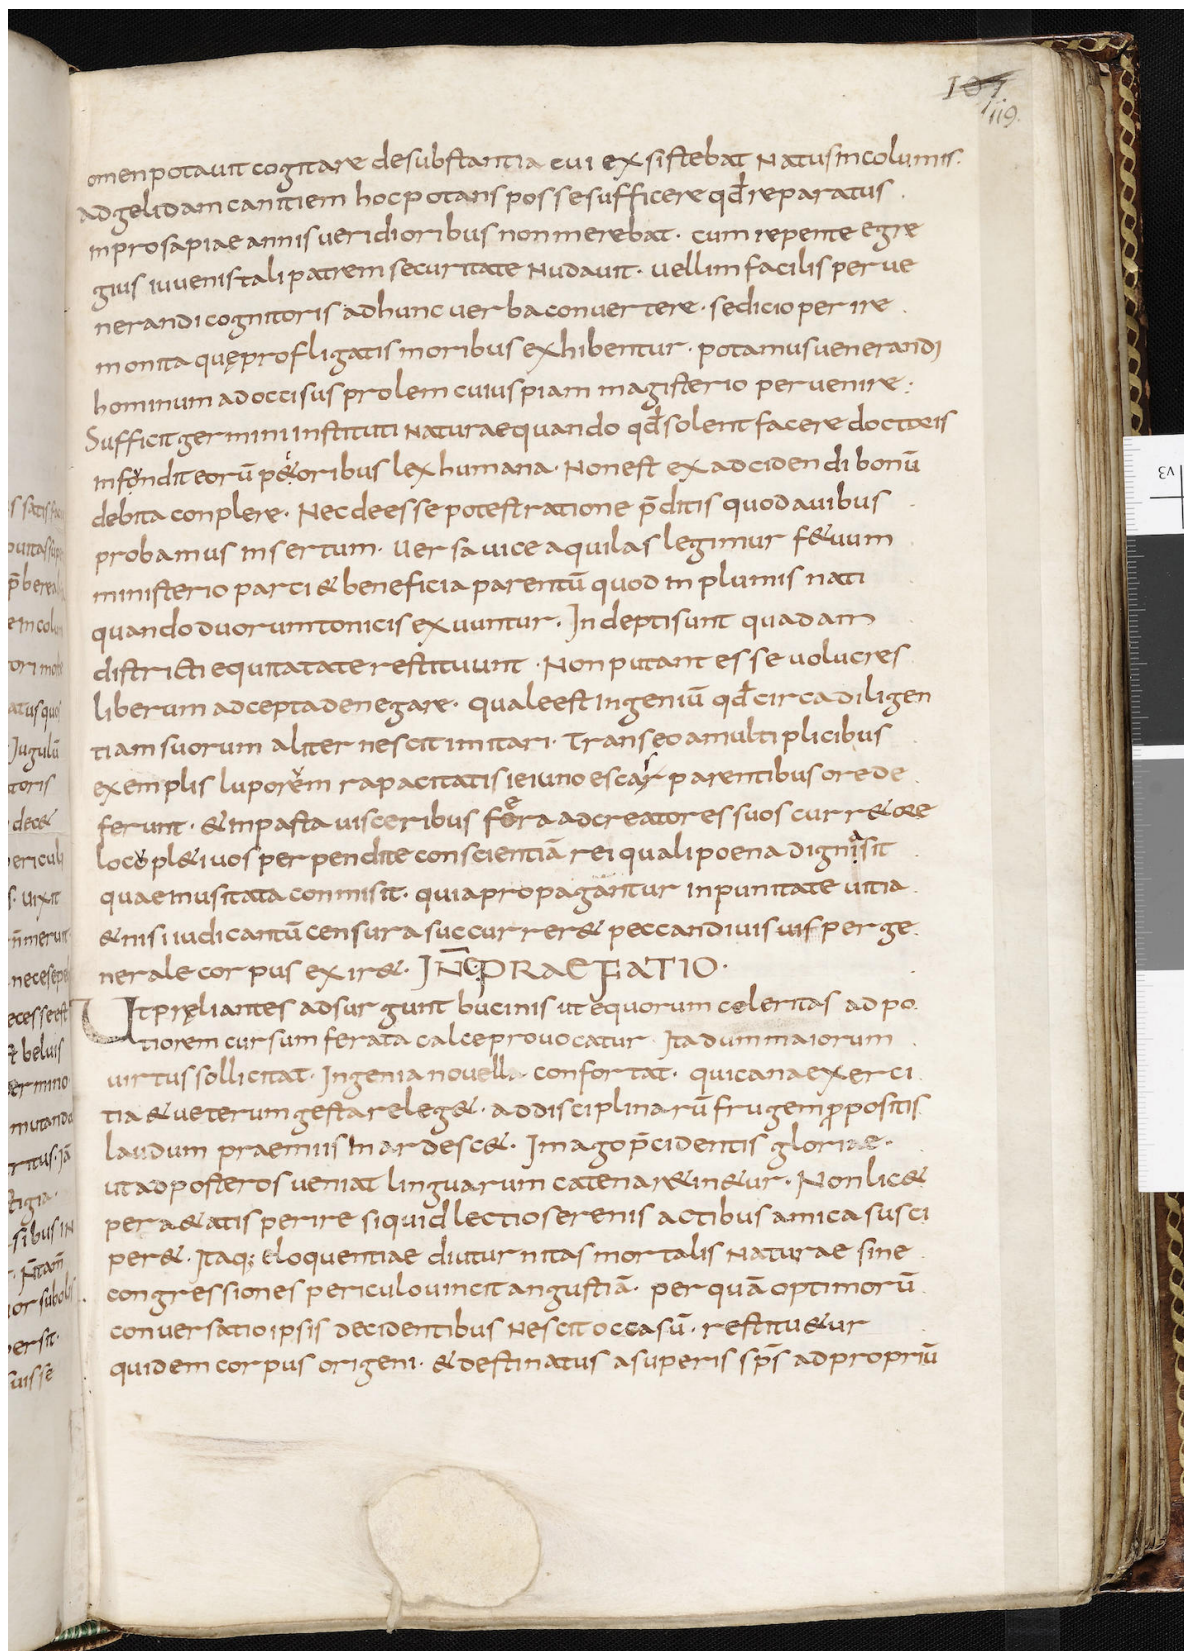 107
119.
omen potavit cogitare de substantia cui exsistebat Natus incolumis.
ad gelidam canitiem hoc potans posse sufficere qđ reparatus
in prosapiae annis viridioribus non merebat. cum repente egre
gius iuvenis tali patrem securitate Nudavit. vellim facilis perve
nerandi cognitoris ad hunc verba convertere. sed icio perire
monita quę profligatis moribus exhibentur. potamus venerandi
hominum ad occisus prolem cuiuspiam magisterio pervenire.
Sufficit germini instituti Naturae quando qđ solent facere doctoris
infundit eorū p&oribus lex humana. Non est ex adcidendi bonū
debita conplere. Nec deesse potest ratione p̄ditis quod avibus
probamus insertum. Versa vice aquilas legimur f&uum
ministerio parci & beneficia parentū quod in plumis nati
quando duorum tonicis exuuntur. Indepti sunt quadam
districti equitatate restituunt. Non putant esse volucres
liberum adcepta denegare. quale est ingeniū qđ circa diligen
tiam suorum aliter nescit imitari. Transeo a multiplicibus
exemplis luporum rapacitatis ieiuno escas parentibus ore de
ferunt. & inpasta visceribus foera ad creatores suos curr& ore
locupl& i vos perpendite conscientiā rei quali poena digna sit
quae inusitata conmisit. quia propagantur inpunitate vitia
& nisi iudicantū censura succurrer& peccandi vis vis per ge
nerale corpus exir&. INC̄ PRAEFATIO.
Ut pręliantes adsurgunt bucinis ut equorum celeritas ad po
tiorem cursum ferata calce provocatur. Ita dum maiorum
virtus sollicitat. Ingenia novella confortat. qui cana exerci
tia & veterum gesta releg&. ad disciplinarū frugem ꝓpositis
laudum praemiis inardesc&. Imago p̄cidentis gloriae.
ut ad posteros veniat linguarum catena r&in&ur. Non lic&
per a&atis perire siquid lectio serenis actibus amica susci
per&. Itaq; eloquentiae diuturnitas mortalis Naturae sine
congressiones periculo vincit angustiā. per quā optimorū
conversatio ipsis decidentibus Nescit occasū. restitu&ur
quidem corpus origeni. & destinatus a superis sp̄s ad propriū